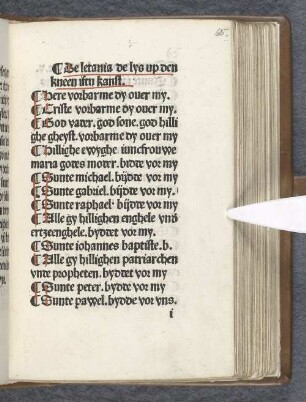 65.
¶ De letania de lys up den
kneen istu kanst.
¶ Here vorbarme dy ouer my.
¶ Criste vorbarme dy ouer my.
¶ God vater. god sone. god hilli
ghe gheyst. vorbarme dy ouer my
¶ Hillighe ewyghe iuncfrouwe
maria godes moter. bidde vor my
¶ Sunte michael. bijdde vor my
¶ Sunte gabriel. bijdte vor my.
¶ Sunte raphael bijdte vor my
¶ Alle gy hillighen enghele vnd
ertzeenghele. byddet vor my.
¶ Sunte iohannes baptiste. b.
¶ Alle gy hillighen patriarchen
vnde propheten. byddet vor my
¶ Sunte peter. bydde vor my
¶ Sunte pawel. bydde vor vns.
i